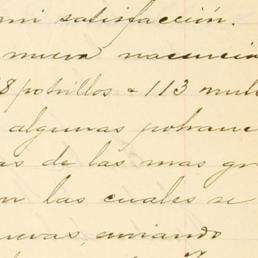 mi satisfacción.
nueva
8 potrillos a 113 mul
algunas potranc
as de las mas gr
n las cuales se
uevas, enviando